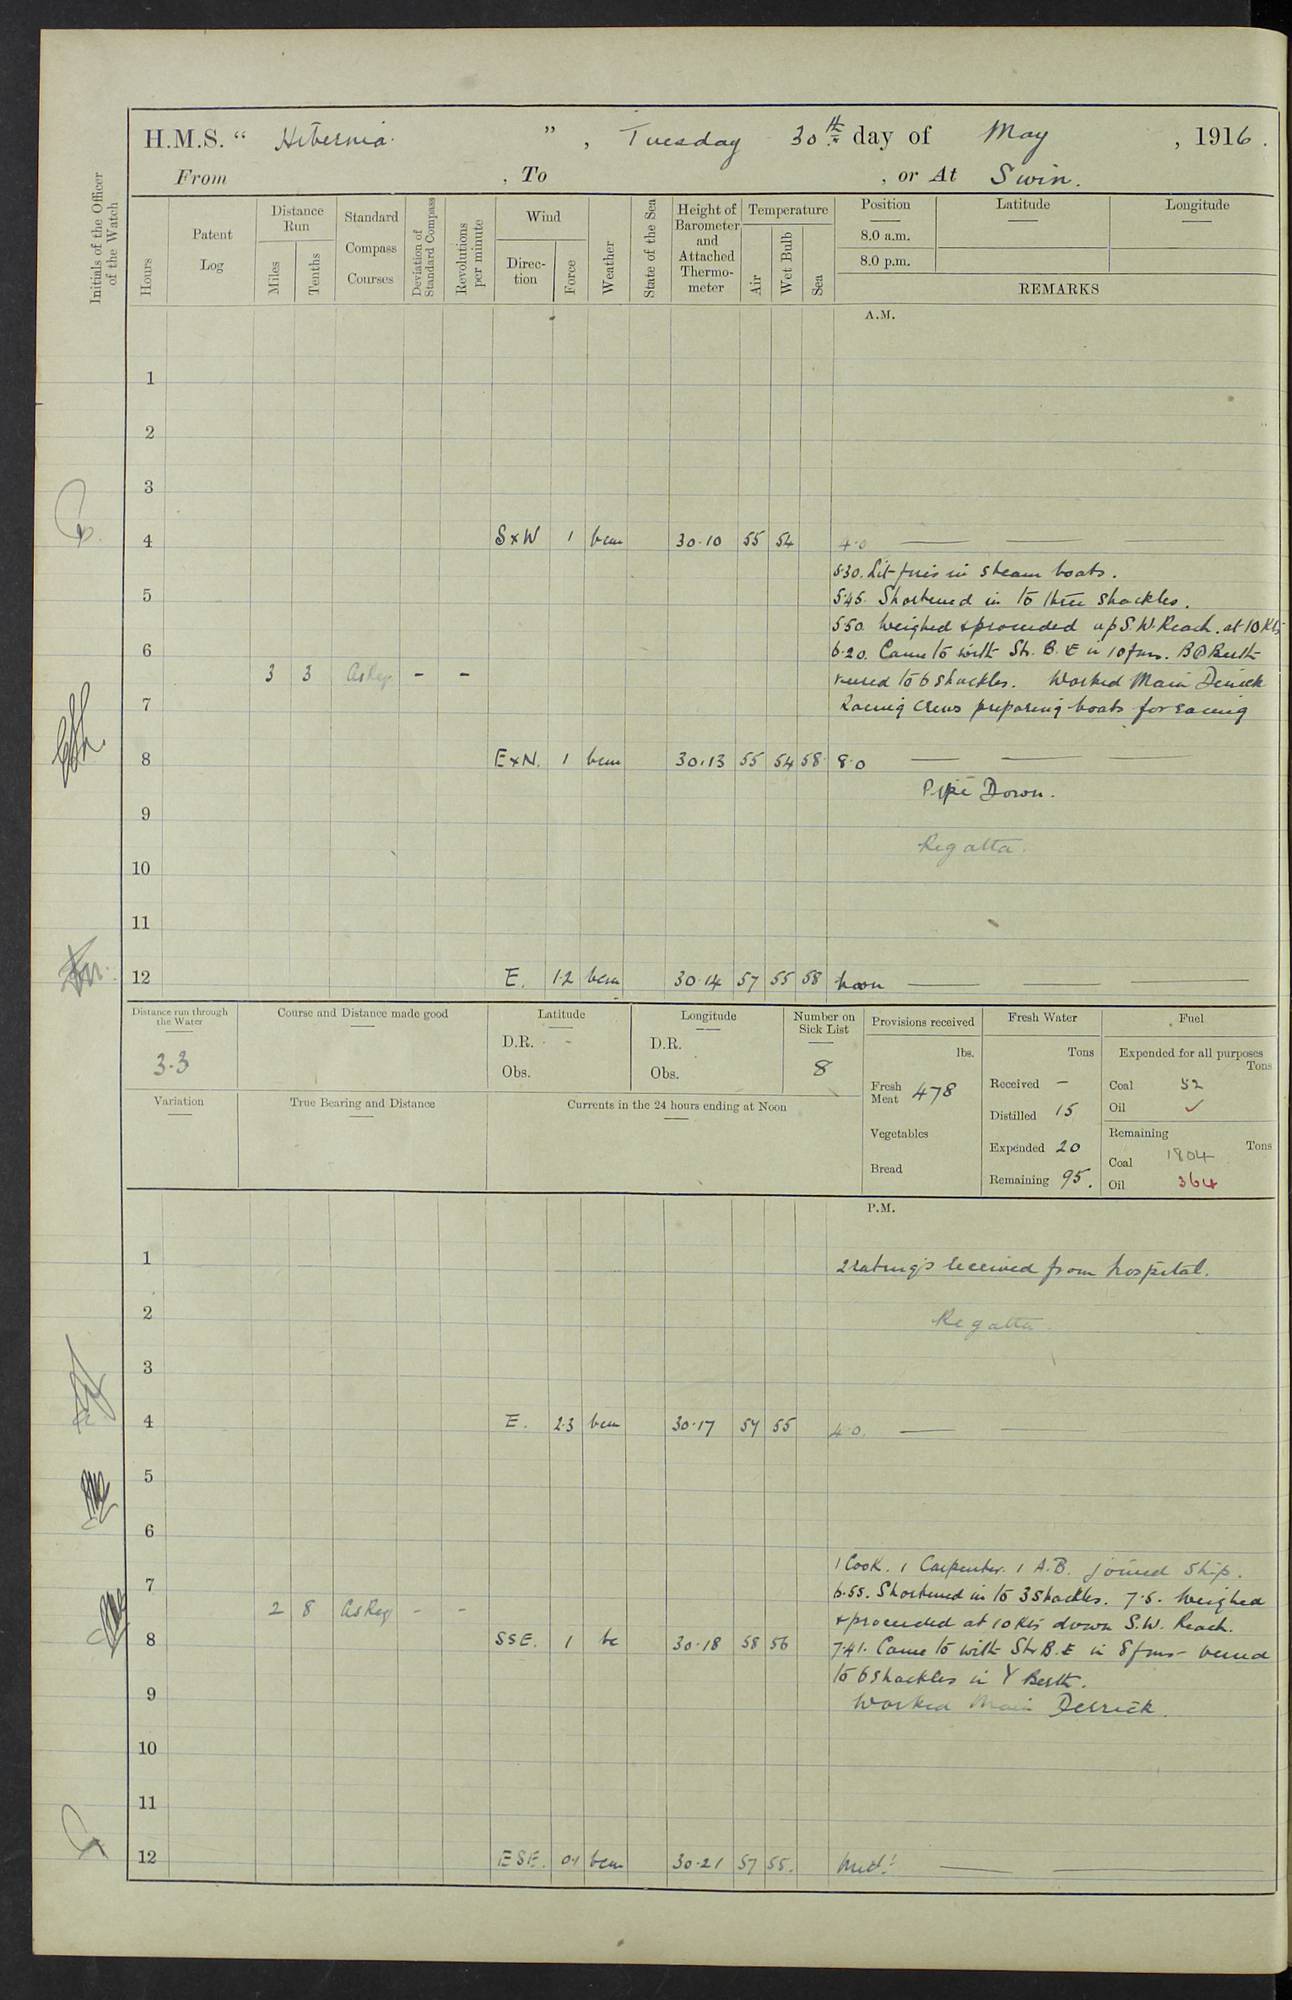 H.M.S. “ Hibernia ” , Tuesday 30th day of May , 1916.
From , To , or At Swin.
Initials of the Officer of the Watch
Hours
Patent Log
Distance Run
Miles
Tenths
Standard Compass Courses
Deviation of Standard Compass
Revolutions per minute
Wind
Direction
Force
Weather
State of the Sea
Height of Barometer and Attached Thermometer
Temperature
Air
Wet Bulb
Sea
Position
8.0 a.m.
8.0 p.m.
Latitude
Longitude
REMARKS
A.M.
1
2
3
4 SxW 1 bcm 30.10 55 54 4.0
5.30. Lit fires in steam boats.
5 5.45. Shortened in to three shackles.
5.50 Weighed & proceeded up S.W. Reach. at 10 Kts
6 6.20. Came to with St. B. E in 10 fms. B Berth
3 3 As Req - - veered to 6 shackles. Worked Main Derrick
7 Racing crews preparing boats for racing
8 ExN. 1 bcm 30.13 55 54 58 8.0
Pipe Down.
9
Regatta.
10
11
12 E. 1.2 bcm 30.14 57 55 58 Noon
Distance run through the Water
3.3
Course and Distance made good
Latitude
D.R. -
Obs.
Longitude
D.R.
Obs.
Number on Sick List
8
Variation
True Bearing and Distance
Currents in the 24 hours ending at Noon
Provisions received
lbs.
Fresh Meat 478
Vegetables
Bread
Fresh Water
Tons
Received -
Distilled 15
Expended 20
Remaining 95.
Fuel
Expended for all purposes
Tons
Coal 52
Oil ✓
Remaining
Tons
Coal 1804
Oil 364
P.M.
1 2 ratings received from hospital.
2 Regatta.
3
4 E. 2.3 bcm 30.17 57 55 4.0.
5
6
1 Cook. 1 Carpenter. 1 A.B. joined ship.
7 6.55. Shortened in to 3 shackles. 7.5. Weighed
2 8 As Req - - & proceeded at 10 Kts down S.W. Reach.
8 SSE. 1 bc 30.18 58 56 7.41. Came to with St. B. E in 8 fms - veered
to 6 shackles in Y Berth.
9 Worked Main Derrick.
10
11
12 ESE. 0.1 bcm 30.21 57 55. Midt